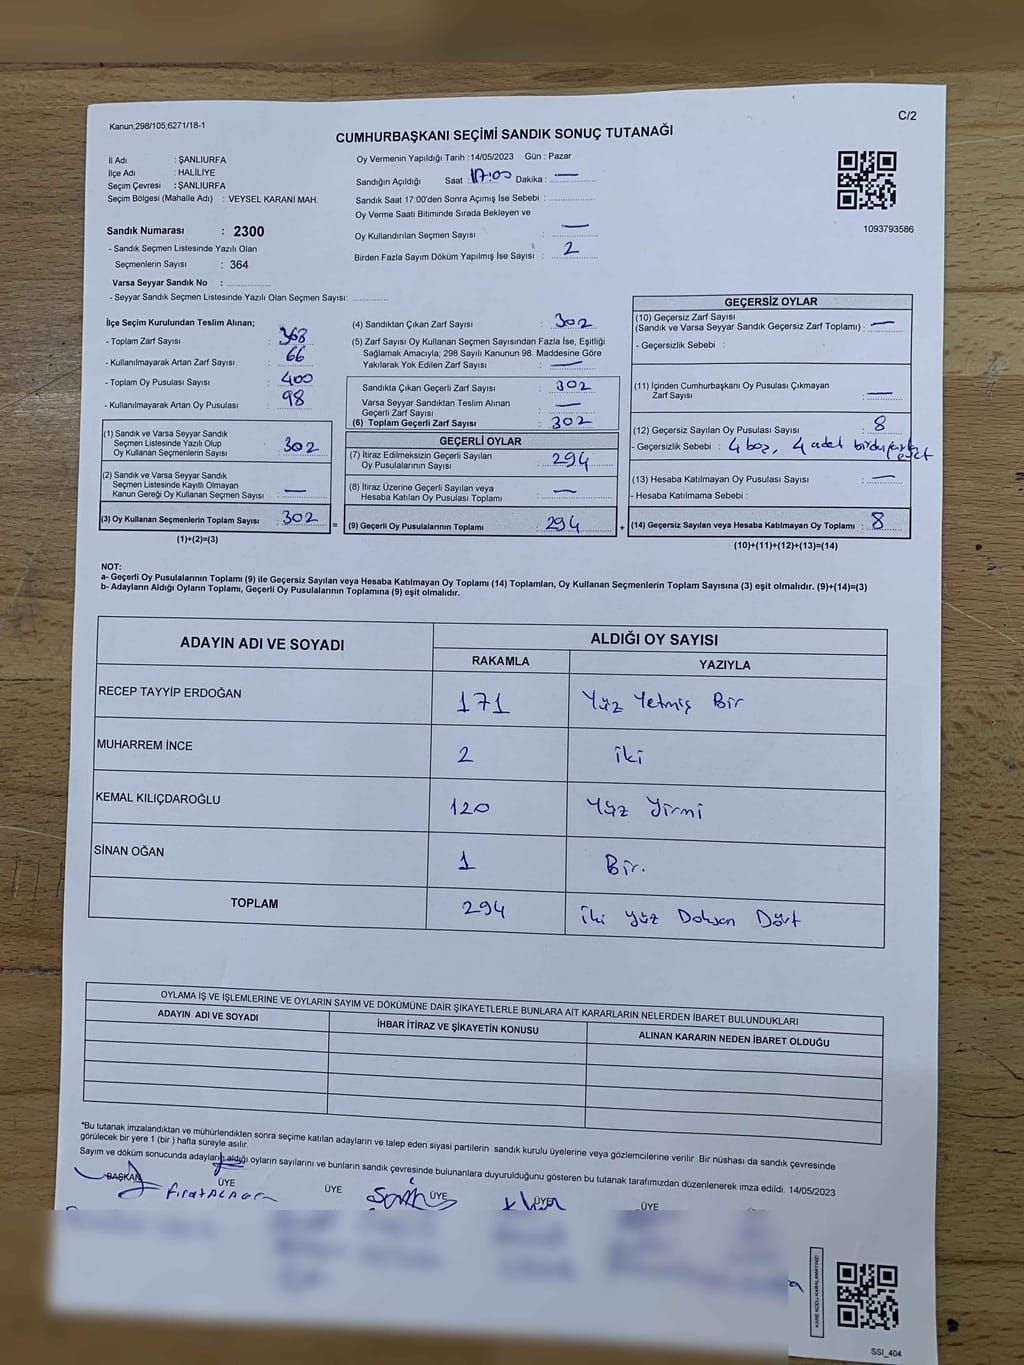 Kanun;298/105;6271/18-1
C/2
CUMHURBAŞKANI SEÇİMİ SANDIK SONUÇ TUTANAĞI
İl Adı : ŞANLIURFA
İlçe Adı : HALİLİYE
Seçim Çevresi : ŞANLIURFA
Seçim Bölgesi (Mahalle Adı) : VEYSEL KARANİ MAH.
Sandık Numarası : 2300
- Sandık Seçmen Listesinde Yazılı Olan
Seçmenlerin Sayısı : 364
Varsa Seyyar Sandık No : ..............
- Seyyar Sandık Seçmen Listesinde Yazılı Olan Seçmen Sayısı: ............
Oy Vermenin Yapıldığı Tarih :14/05/2023 Gün : Pazar
Sandığın Açıldığı Saat : 17:00 Dakika : —
Sandık Saat 17:00'den Sonra Açımış İse Sebebi : ..............
Oy Verme Saati Bitiminde Sırada Bekleyen ve
Oy Kullandırılan Seçmen Sayısı : —
Birden Fazla Sayım Döküm Yapılmış İse Sayısı : 2
1093793586
İlçe Seçim Kurulundan Teslim Alınan;
- Toplam Zarf Sayısı : 368
- Kullanılmayarak Artan Zarf Sayısı : 66
- Toplam Oy Pusulası Sayısı : 400
- Kullanılmayarak Artan Oy Pusulası : 98
(1) Sandık ve Varsa Seyyar Sandık
Seçmen Listesinde Yazılı Olup
Oy Kullanan Seçmenlerin Sayısı : 302
(2) Sandık ve Varsa Seyyar Sandık
Seçmen Listesinde Kayıtlı Olmayan
Kanun Gereği Oy Kullanan Seçmen Sayısı : —
(3) Oy Kullanan Seçmenlerin Toplam Sayısı : 302
(1)+(2)=(3)
(4) Sandıktan Çıkan Zarf Sayısı : 302
(5) Zarf Sayısı Oy Kullanan Seçmen Sayısından Fazla İse, Eşitliği
Sağlamak Amacıyla, 298 Sayılı Kanunun 98. Maddesine Göre
Yakılarak Yok Edilen Zarf Sayısı : —
Sandıkta Çıkan Geçerli Zarf Sayısı : 302
Varsa Seyyar Sandıktan Teslim Alınan
Geçerli Zarf Sayısı : —
(6) Toplam Geçerli Zarf Sayısı : 302
GEÇERLİ OYLAR
(7) İtiraz Edilmeksizin Geçerli Sayılan
Oy Pusulalarının Sayısı : 294
(8) İtiraz Üzerine Geçerli Sayılan veya
Hesaba Katılan Oy Pusulası Toplamı : —
= (9) Geçerli Oy Pusulalarının Toplamı : 294
GEÇERSİZ OYLAR
(10) Geçersiz Zarf Sayısı
(Sandık ve Varsa Seyyar Sandık Geçersiz Zarf Toplamı) : —
- Geçersizlik Sebebi :
(11) İçinden Cumhurbaşkanı Oy Pusulası Çıkmayan
Zarf Sayısı : —
(12) Geçersiz Sayılan Oy Pusulası Sayısı : 8
- Geçersizlik Sebebi : 4 boş, 4 adet birden fazla
(13) Hesaba Katılmayan Oy Pusulası Sayısı : —
- Hesaba Katılmama Sebebi :
+ (14) Geçersiz Sayılan veya Hesaba Katılmayan Oy Toplamı : 8
(10)+(11)+(12)+(13)=(14)
NOT:
a- Geçerli Oy Pusulalarının Toplamı (9) ile Geçersiz Sayılan veya Hesaba Katılmayan Oy Toplamı (14) Toplamları, Oy Kullanan Seçmenlerin Toplam Sayısına (3) eşit olmalıdır. (9)+(14)=(3)
b- Adayların Aldığı Oyların Toplamı, Geçerli Oy Pusulalarının Toplamına (9) eşit olmalıdır.
ADAYIN ADI VE SOYADI ALDIĞI OY SAYISI
RAKAMLA YAZIYLA
RECEP TAYYİP ERDOĞAN 171 Yüz Yetmiş Bir
MUHARREM İNCE 2 iki
KEMAL KILIÇDAROĞLU 120 Yüz Yirmi
SİNAN OĞAN 1 Bir.
TOPLAM 294 iki yüz Doksan Dört
OYLAMA İŞ VE İŞLEMLERİNE VE OYLARIN SAYIM VE DÖKÜMÜNE DAİR ŞİKAYETLERLE BUNLARA AİT KARARLARIN NELERDEN İBARET BULUNDUKLARI
ADAYIN ADI VE SOYADI İHBAR İTİRAZ VE ŞİKAYETİN KONUSU ALINAN KARARIN NEDEN İBARET OLDUĞU
*Bu tutanak imzalandıktan ve mühürlendikten sonra seçime katılan adayların ve talep eden siyasi partilerin sandık kurulu üyelerine veya gözlemcilerine verilir .Bir nüshası da sandık çevresinde
görülecek bir yere 1 (bir ) hafta süreyle asılır.
Sayım ve döküm sonucunda adayların aldığı oyların sayılarını ve bunların sandık çevresinde bulunanlara duyurulduğunu gösteren bu tutanak tarafımızdan düzenlenerek imza edildi. 14/05/2023
BAŞKAN ÜYE ÜYE ÜYE ÜYE ÜYE
KARE KODU KARALAMAYINIZ!
SSI_404